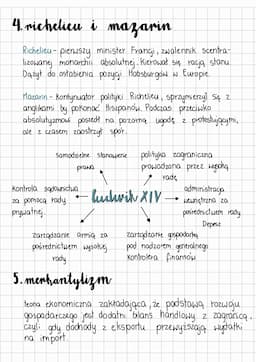 4. richelieu i mazarin
Richelieu - pierwszy minister Francji, zwolennik scentra-
lizowanej monarchii absolutnej. Kierował się racją stanu.
Dążył do osłabienia pozycji Habsburgów w Europie.
Mazarin - kontynuator polityki Richelieu, sprzymierzył się z
anglikami by pokonać Hiszpanów. Podczas przeciwko
absolutyzmowi poszedł na pozorną ugodę z protestującymi,
ale z czasem zaostrzył spór.
samodzielne stanowienie
prawa
polityka zagraniczna
prowadzona przez wysoką
radę
kontrola sądownictwa
za pomocą rady
prywatnej.
ludwik XIV
administracja
wewnętrzna za
pośrednictwem rady
Depesz
zarządzanie armią za
pośrednictwem wysokiej
rady
zarządzanie gospodarką
pod nadzorem generalnego
kontrolera finansów
5. merkantylizm
teoria ekonomiczna zakładająca, że podstawą rozwoju
gospodarczego jest dodatni bilans handlowy z zagranicą,
czyli gdy dochody z eksportu przewyższają wydatki
na import.